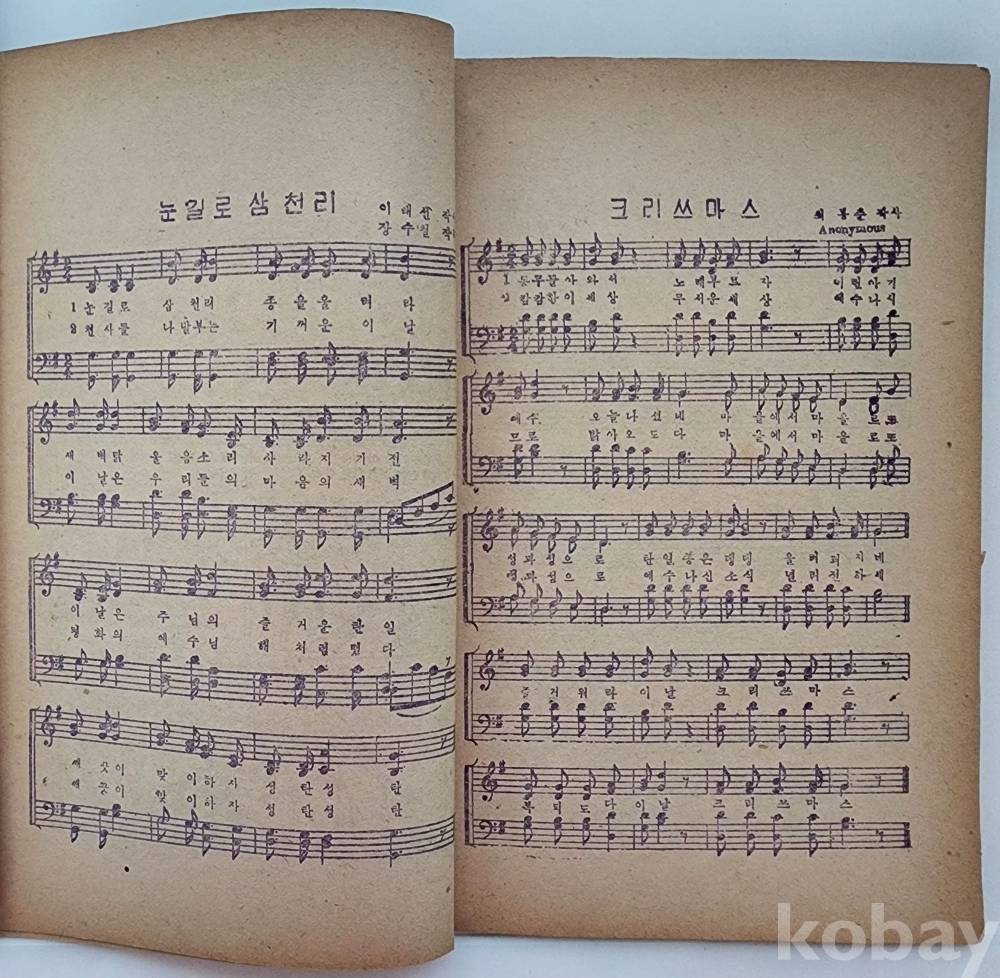 눈길로 삼천리
이태선 작
장수철 작
1 눈길로 삼천리 종을울려라
2 천사들 나팔부는 기꺼운이날
새벽닭 울음소리 사라지기전
이날은 우리들의 마음의새벽
이날은 주님의 즐거운탄일
평화의 예수님 해처럼떴다
깨끗이 맞이하자 성탄성탄
깨끗이 맞이하자 성탄성탄
크리쓰마스
최봉춘 작사
Anonymous
1 동무들아와서 노래부르자 어린아기
2 캄캄한이세상 무서운세상 예수나시
예수 오늘나신네 마을에서마을로또
므로 밝사오도다 마을에서마을로또
성과성으로 탄일종은댕댕 울려퍼지네
성과성으로 예수나신소식 널리전하세
즐거워라이날 크리쓰마스
복되도다이날 크리쓰마스
kobay